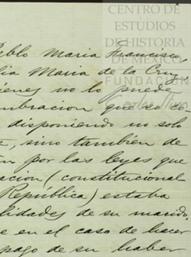 CENTRO DE
ESTUDIOS
DE HISTORIA
DE MÉXICO
FUNDACIÓN
Pablo Maria Francisco,
lia Maria de la Cruz,
ienes no lo puede
mbracion que se
disponiendo no solo
, sino tambien de
n por las leyes que
acion (constitucional
República) estaba
lidades de su marido
e en el caso de hacer
pago de su haber